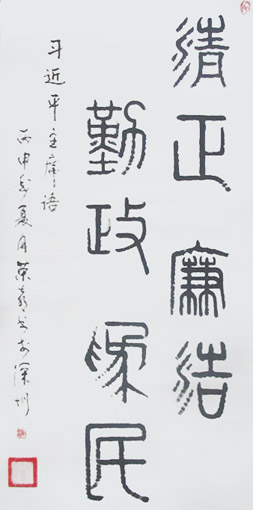 清正廉洁
勤政為民
习近平主席语
丙申年夏月荣书于深圳